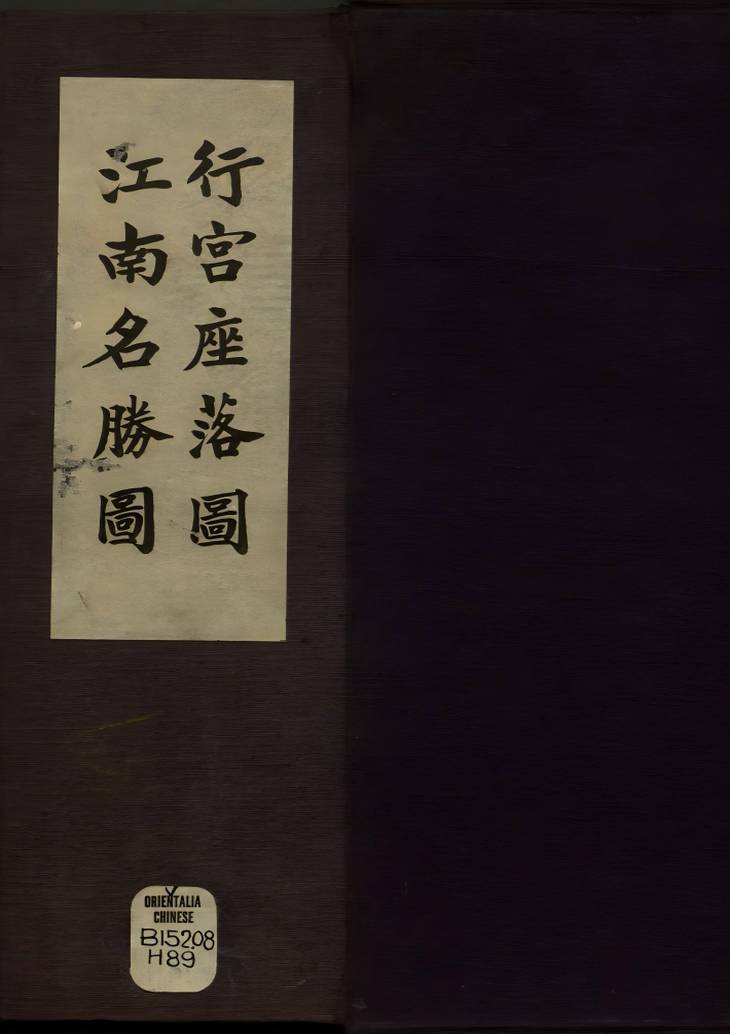 行宮座落圖
江南名勝圖
ORIENTALIA
CHINESE
B152.08
H89